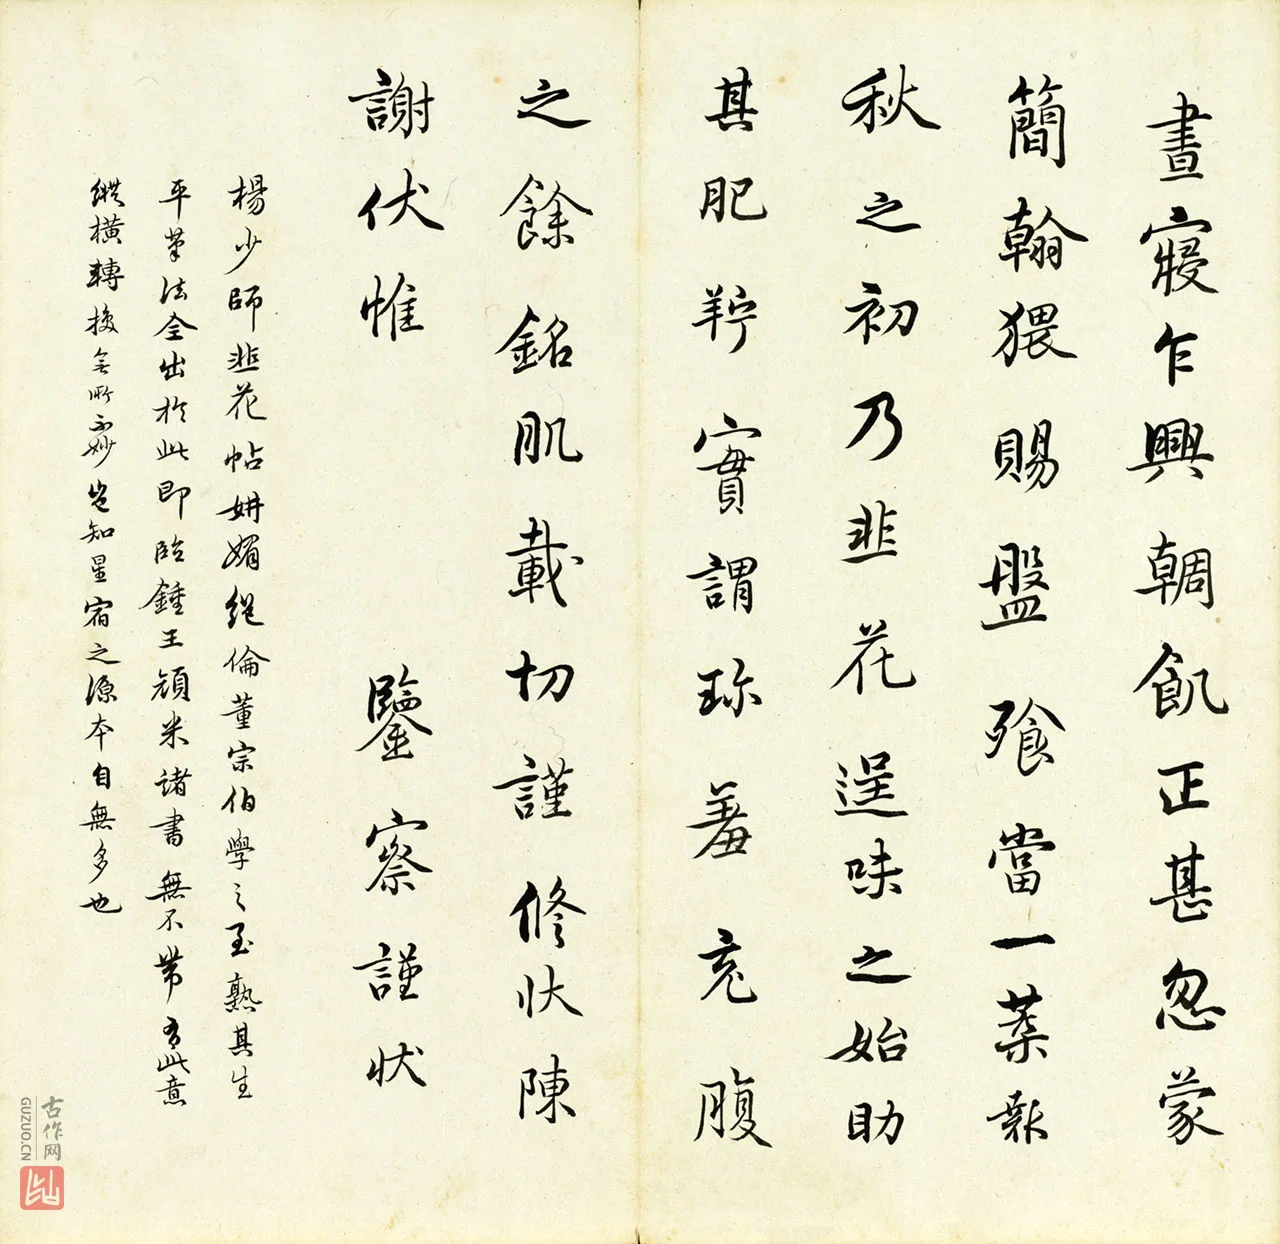 晝寢乍興輖飢正甚忽蒙
簡翰猥賜盤飧當一葉報
秋之初乃韭花逞味之始助
其肥羜實謂珍羞充腹
之餘銘肌載切謹修狀陳
謝伏惟 鑒察謹狀
楊少師韭花帖妍媚絕倫董宗伯學之至熟其生
平筆法全出於此即臨鍾王顏米諸書無不帶有此意
縱橫轉換無所不妙豈知星宿之源本自無多也
古作网
GUZUO.CN